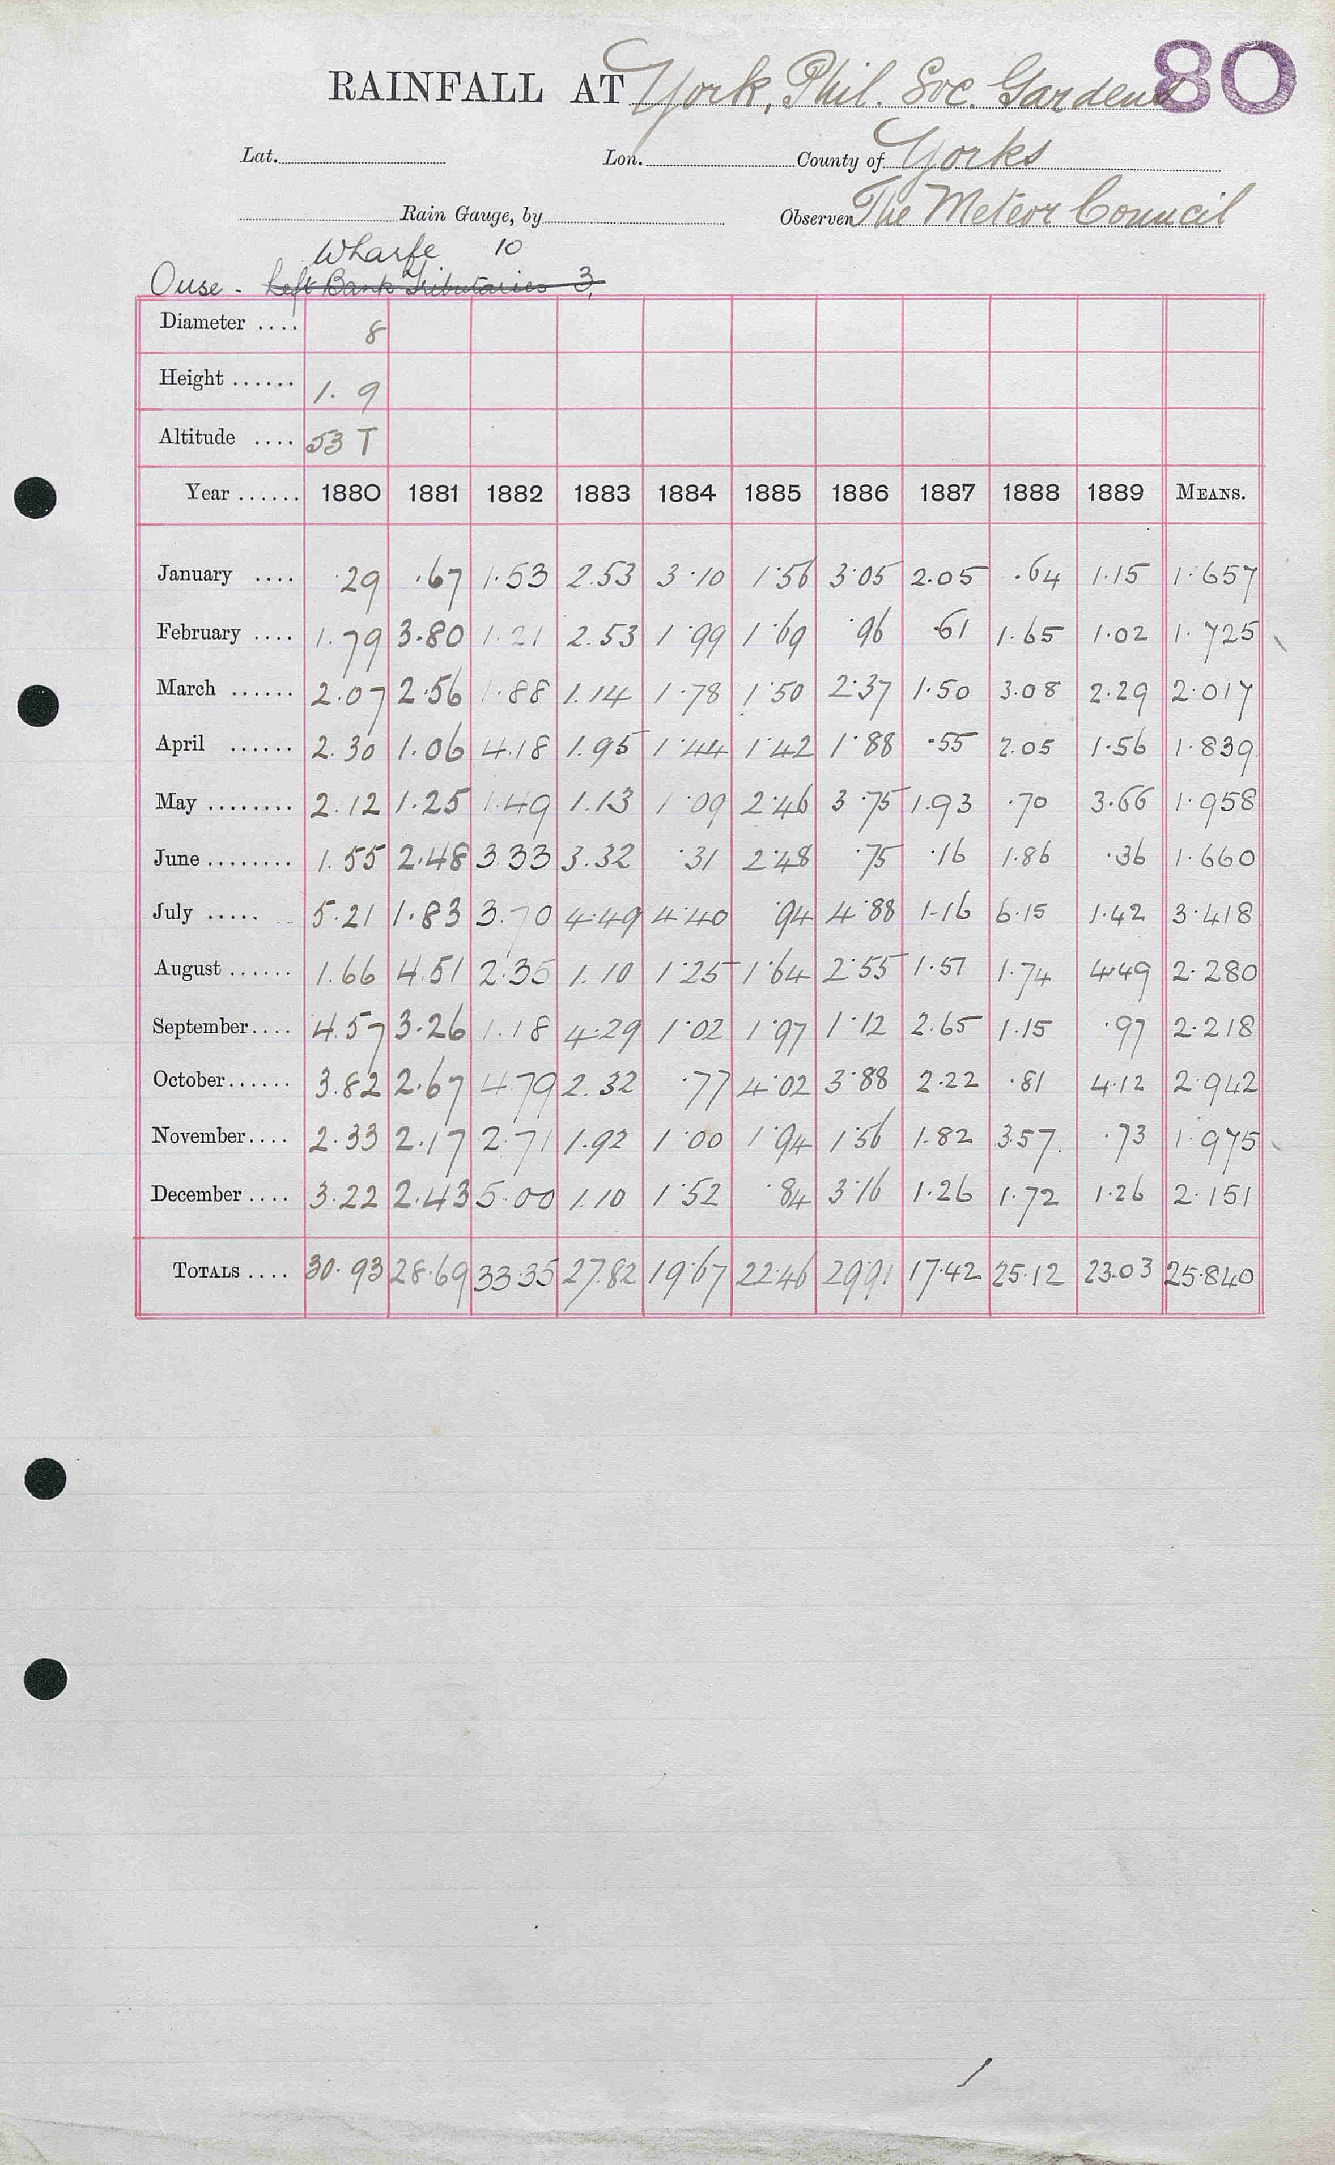 80
RAINFALL AT York, Phil. Soc. Gardens
Lat. Lon. County of Yorks
Rain Gauge, by Observer The Meteor Council
Wharfe 10
Ouse - Left Bank Tributaries 3.
Diameter .... 8
Height ...... 1. 9
Altitude .... 53 T
Year ...... 1880 1881 1882 1883 1884 1885 1886 1887 1888 1889 MEANS.
January .... .29 .67 1.53 2.53 3.10 1.56 3.05 2.05 .64 1.15 1.657
February .... 1.79 3.80 1.21 2.53 1.99 1.69 .96 .61 1.65 1.02 1.725
March ...... 2.07 2.56 1.88 1.14 1.78 1.50 2.37 1.50 3.08 2.29 2.017
April ...... 2.30 1.06 4.18 1.95 1.44 1.42 1.88 .55 2.05 1.56 1.839
May ........ 2.12 1.25 1.49 1.13 1.09 2.46 3.75 1.93 .70 3.66 1.958
June ........ 1.55 2.48 3.33 3.32 .31 2.48 .75 .16 1.86 .36 1.660
July ..... 5.21 1.83 3.70 4.49 4.40 .94 4.88 1.16 6.15 1.42 3.418
August ...... 1.66 4.51 2.35 1.10 1.25 1.64 2.55 1.51 1.74 4.49 2.280
September.... 4.57 3.26 1.18 4.29 1.02 1.97 1.12 2.65 1.15 .97 2.218
October...... 3.82 2.67 4.79 2.32 .77 4.02 3.88 2.22 .81 4.12 2.942
November.... 2.33 2.17 2.71 1.92 1.00 1.94 1.56 1.82 3.57 .73 1.975
December .... 3.22 2.43 5.00 1.10 1.52 .84 3.16 1.26 1.72 1.26 2.151
TOTALS .... 30.93 28.69 33.35 27.82 19.67 22.46 29.91 17.42 25.12 23.03 25.840